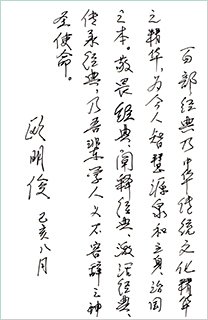 百部经典乃中华传统文化精华
之精华，为今人智慧源泉和立身、治国
之本。敬畏经典、阐释经典、激活经典、
传承经典，乃吾辈学人义不容辞之神
圣使命。
欧明俊
己亥八月